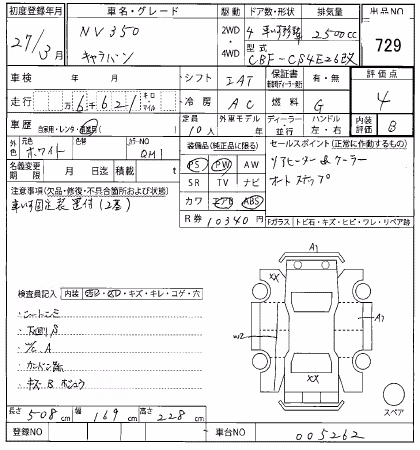 初度登録年月 車名・グレード 駆動 ドア数・形状 排気量 出品NO
27/3月 NV350 キャラバン 2WD 4WD 4 車いす移動 2500cc 729
型式 CBF-CS4E26改
車検 年 月 シフト IAT 保証書 有・無 評価点
走行 6千621 キロ マイル 冷房 AC 燃料 G 4
車歴 自家用・レンタ 定員 10人 外車モデル 年 ディーラー 並行 ハンドル 左・右 内装評価 B
外色 元色 ホワイト カラーNO QM1 装備品(純正品に限る) セールスポイント(正常に動作するもの)
名義変更期限 月 日迄 積載 t PS PW AW リアヒーター&クーラー
注意事項(欠品・修復・不具合箇所および状態) SR TV ナビ オートステップ
車いす固定装置付(2基) カワ エアB ABS
R券 10340円 Fガラス トビ石・キズ・ヒビ・ワレ・リペア跡
検査員記入 内装 キズ・キレ・コゲ・穴
シートシミ
下回りS
A
キズ B ボシュウ
A1
XX
W2
A1
XX
スペア
長さ 508cm 幅 169cm 高さ 228cm
登録NO 車台NO 005262